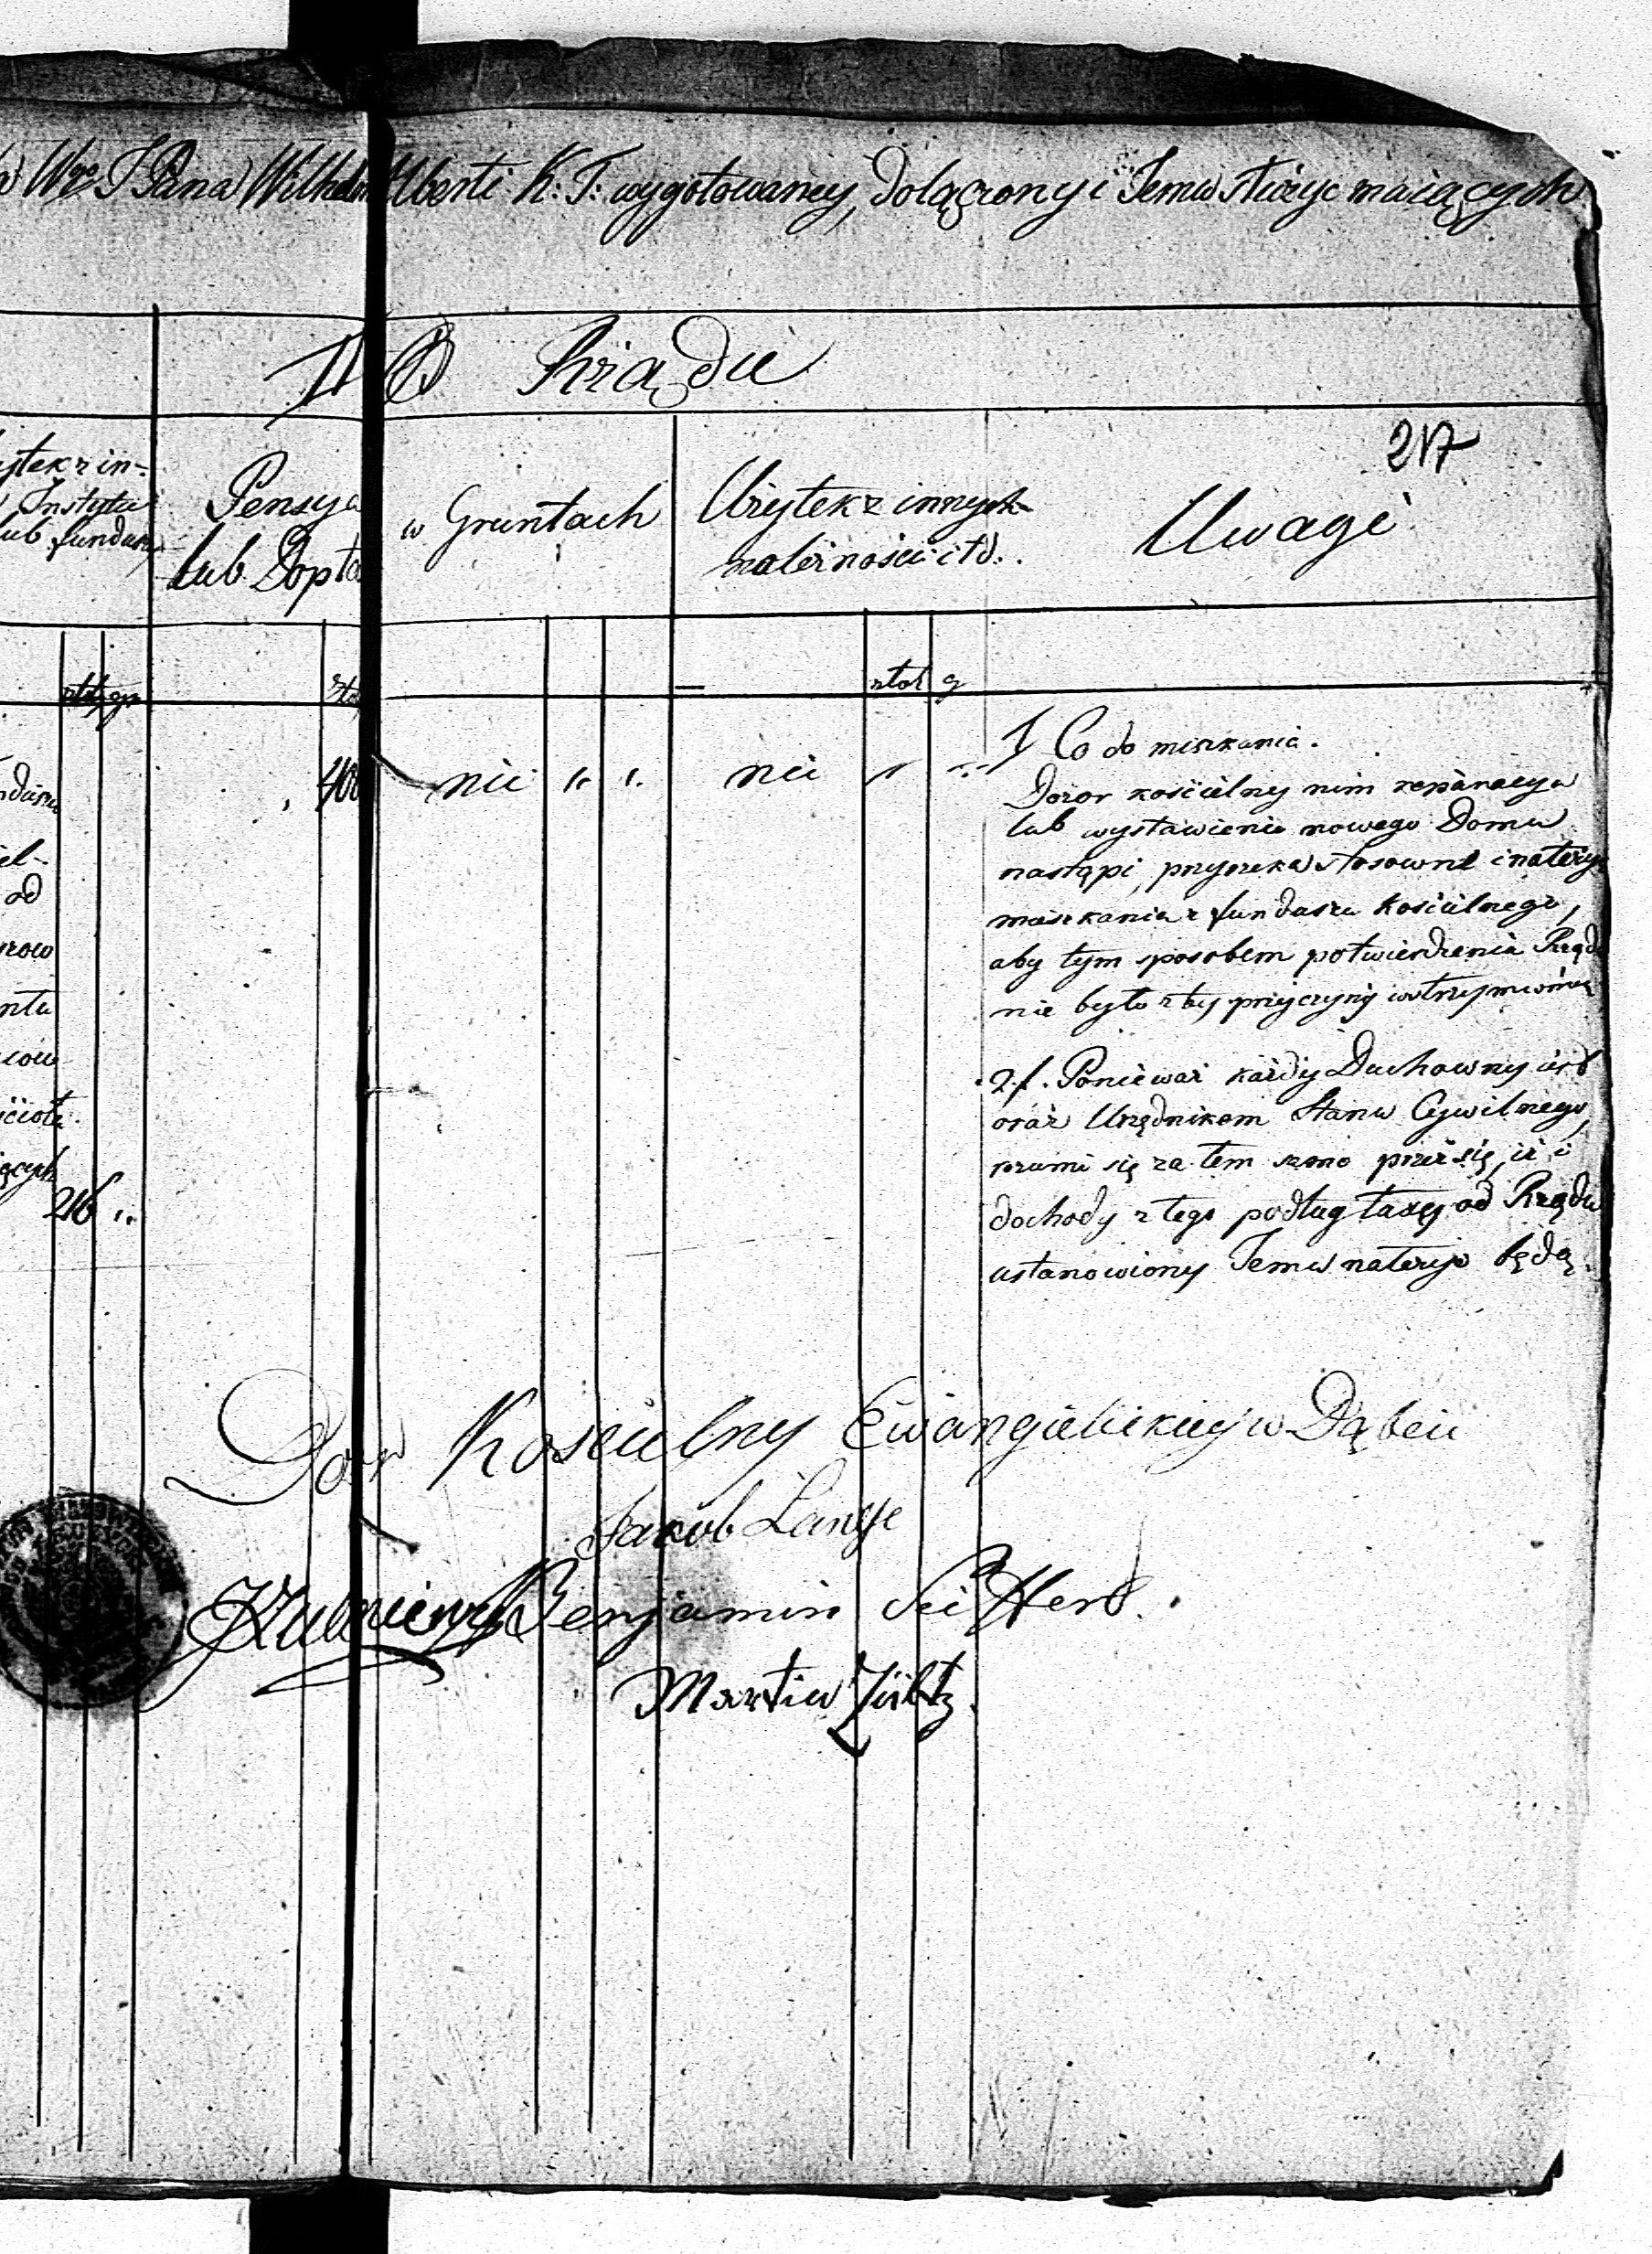 Wgo J Pana Wilhelm Uberti K: T: wygotowaney, dołączony i Jemu służyc maiących
II Od Rządu
217
Instytu
lub fundusz
Pensya
lub Dopła
w Gruntach
Użytek z innych
należności i td.
Uwagi
złot g
400
nic
nic
1 Co do miszkania.
Dozor kościelny nim reparacya
lub wystawienie nowego Domu
nastąpi, przyrzeka stosowne i należyte
mieszkania z funduszu Kościelnego,
aby tym sposobem potwierdzenia Rządu
nie było z tey przyczyny wstrzymowane
2. Ponieważ każdy Duchowny iest
oraz Urzędnikem Stanu Cywilnego,
rozumi się za tem samo przez się, iż i
dochody z tego podług taxy od Rządu
ustanowiony Jemu należyć będą.
od
216
Dozor Koscielny Ewangielickiey w Dąbiu
Jakob Lange
Benjamin
Martin